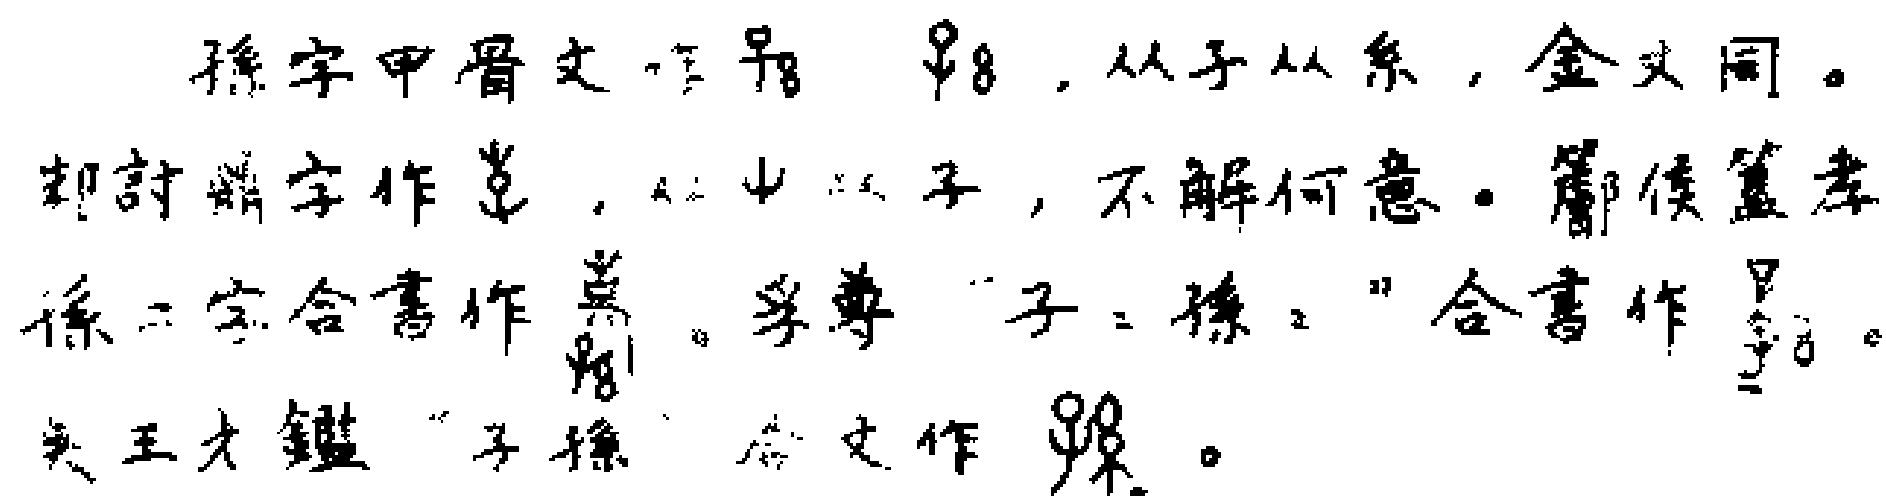 孫字甲骨文作 ，从子从系，金文同。
邾討鼎字作 ，从屮从子，不解何意。鄩侯簋孝
孫二字合書作 。孚尊“子=孫=”合書作 。
吳王才鑑“子孫”合文作 。